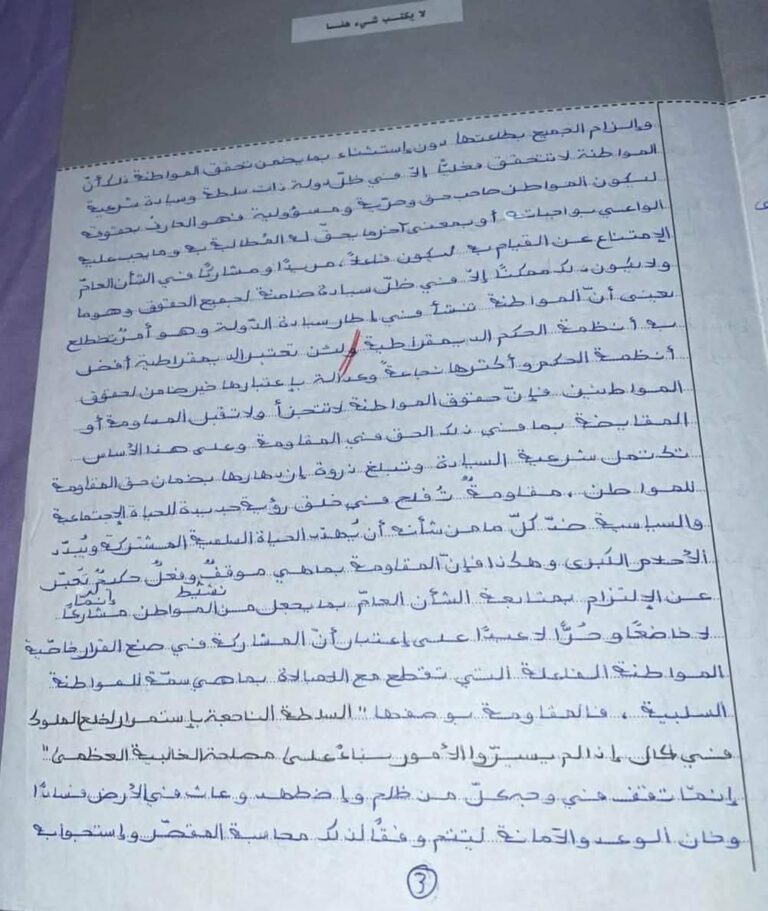 لا يكتب شيء هنا
وإلزام الجميع بطاعتها دون إستثناء بما يضمن تحقق المواطنة ذلك أنّ
المواطنة لا تتحقق فعليًّا إلاّ في ظلّ دولة ذات سلطة وسيادة شرعية
ليكون المواطن صاحب حق وحرّية ومسؤولية فهو العارف بحقوقه
الواعي بواجباته أو بمعنى آخر ما يحقّ له المُطالبة به وما يجب عليه
الإمتناع عن القيام به ليكون فاعلاً، مريدًا ومشاركًا في الشأن العامّ
ولا يكون ذلك ممكنًا إلاّ في ظلّ سيادة ضامنة لجميع الحقوق وهو ما
يعني أنّ المواطنة تنشأ في إطار سيادة الدّولة وهو أمرٌ تضطلع
به أنظمة الحكم الديمقراطية ولئن تعتبر الديمقراطية أفضل
أنظمة الحكم وأكثرها نجاعةً وعدالة بإعتبارها خير ضامن لحقوق
المواطنين فإنّ حقوق المواطنة لا تتجزأ ولا تقبل المساومة أو
المقايضة بما في ذلك الحق في المقاومة وعلى هذا الأساس
تكتمل شرعية السيادة وتبلغ ذروة إزدهارها بضمان حق المقاومة
للمواطن، مقاومةٌ تُفلح في خلق رؤية جديدة للحياة الإجتماعية
والسياسية ضدّ كلّ ما من شأنه أن يُهدّد الحياة السلمية المشتركة ويُبدّد
الأحلام الكبرى وهكذا فإنّ المقاومة بما هي موقفٌ وفعلٌ حكيمٌ تعبّر
عن الإلتزام بمتابعة الشأن العامّ بما يجعل من المواطن نشيط مشارعًا
لا خاضعًا وحُرًّا لا عبدًا على إعتبار أنّ المشاركة في صنع القرار خاصّية
المواطنة الفاعلة التي تقطع مع اللامبالاة بما هي سمّة للمواطنة
السلبية، فالمقاومة بوصفها "السلطة الناجعة بإستمرار لخلع الملوك
في حال إذا لم يسيّروا الأمور بناءً على مصلحة الغالبية العظمى"
إنّما تقف في وجه كلّ من ظلم وإضطهد وعاث في الأرض فسادًا
وخان الوعد والأمانة ليتمّ وفقًا لذلك محاسبة المقصّر وإستجوابه
3